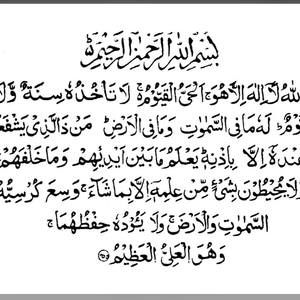 بِسْمِ اللهِ الرَّحْمٰنِ الرَّحِيْمِ
للهُ لَا اِلٰهَ اِلَّا هُوَ ۚ اَلْحَىُّ الْقَيُّوْمُ ۚ لَا تَاْخُذُهٗ سِنَةٌ وَّلَا
وْمٌ ؕ لَهٗ مَا فِى السَّمٰوٰتِ وَمَا فِى الْاَرْضِ ؕ مَنْ ذَا الَّذِىْ يَشْفَعُ
نْدَهٗ اِلَّا بِاِذْنِهٖ ؕ يَعْلَمُ مَا بَيْنَ اَيْدِيْهِمْ وَمَا خَلْفَهُمْ
وَلَا يُحِيْطُوْنَ بِشَىْءٍ مِّنْ عِلْمِهٖ اِلَّا بِمَا شَآءَ ۚ وَسِعَ كُرْسِيُّهُ
السَّمٰوٰتِ وَالْاَرْضَ ۚ وَلَا يَئُوْدُهٗ حِفْظُهُمَا ۚ
وَهُوَ الْعَلِىُّ الْعَظِيْمُ